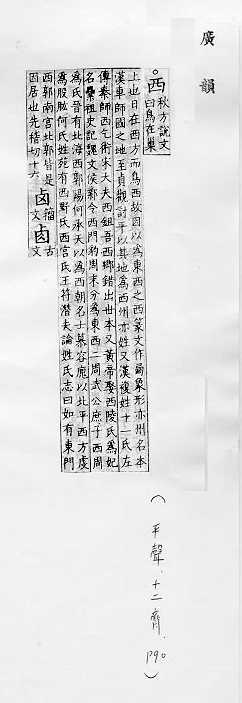 廣韻
西 秋方說文
曰鳥在巢
上也日在西方而鳥西故因以為東西之西篆文作象形亦州名本
漢車師國之地至貞觀討平以其地為西州亦姓又漢複姓十一氏左
傳秦帥西乞術宋大夫西鉏吾西鄉錯出世本又黃帝娶西陵氏為妃
名纍祖史記魏文侯鄴令西門豹周末分為東西二周武公庶子西周
為氏晉有北海西郭陽何承天以為西朝名士慕容廆以北平西方虔
為股肱何氏姓苑有西野氏西宮氏王符潛夫論姓氏志曰如有東門
西郭南宮北郭皆是
因居也先稽切十六
卤 籀文 卥 古文
(平聲.十二齊.P90)